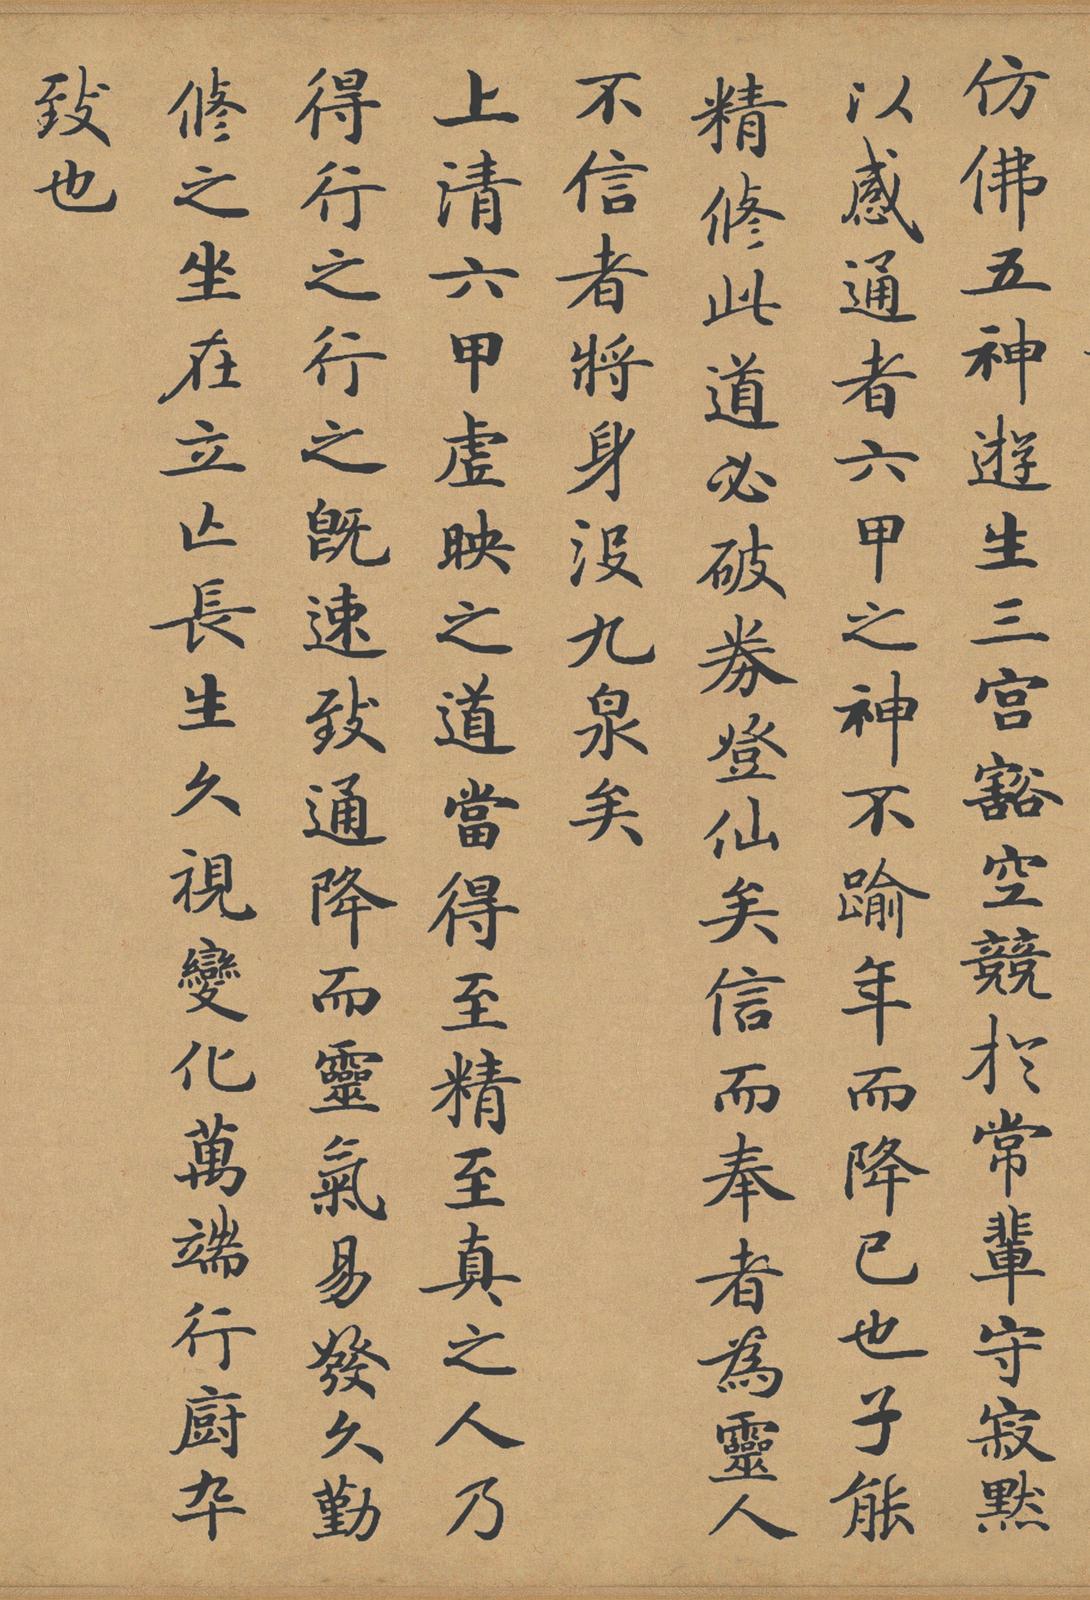 仿佛五神遊生三宮豁空競於常輩守寂默
以感通者六甲之神不踰年而降已也子能
精修此道必破券登仙矣信而奉者為靈人
不信者將身没九泉矣
上清六甲虛映之道當得至精至真之人乃
得行之行之既速致通降而靈氣易發久勤
修之坐在立亡長生久視變化萬端行廚卒
致也